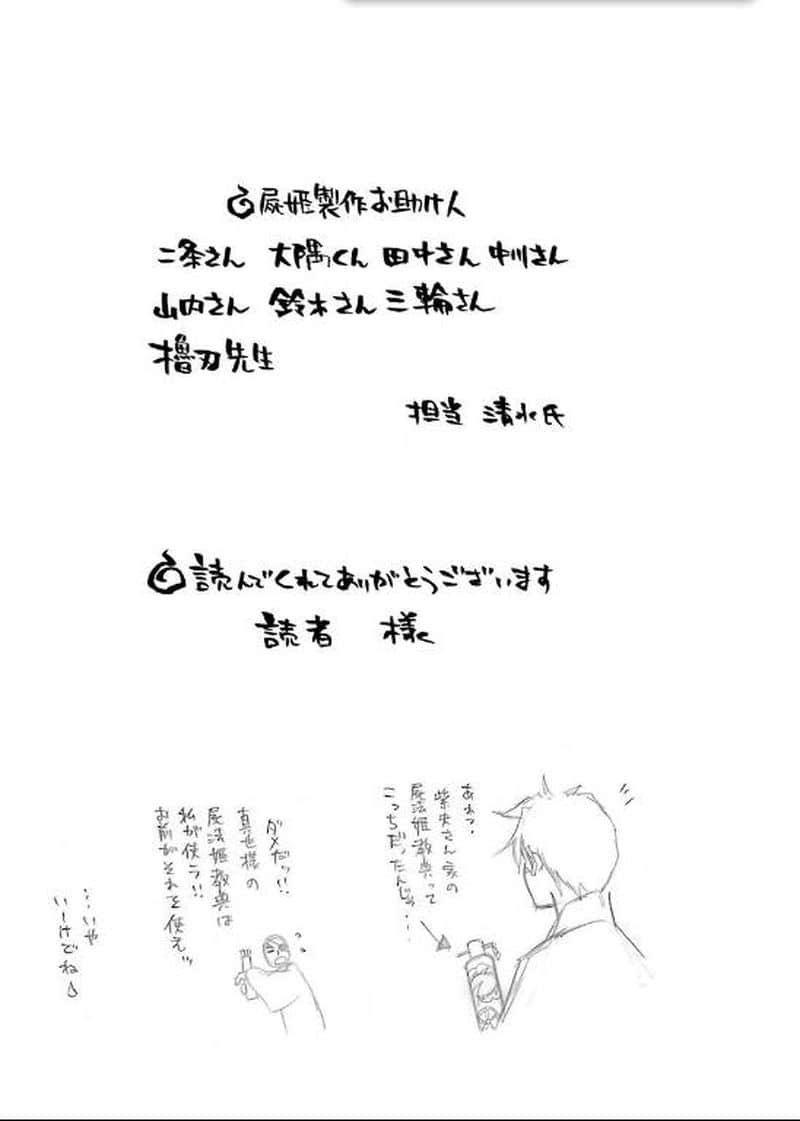 屍姫製作お助け人
二条さん 大隅くん 田中さん 中川さん
山内さん 鈴木さん 三輪さん
櫓刃先生
担当 清水氏
読んでくれてありがとうございます
読者 様
あれっ・
紫央さん家の
屍法姫教典って
こっちだったんじゃ…
ダメだッ!!
真也様の
屍法姫教典は
私が使う!!
お前がそれを使えッ
…いや
いーけどね♪